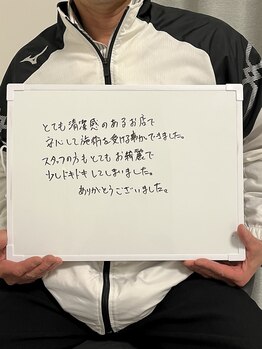 とても清潔感のあるお店で
安心して施術を受ける事ができました。
スタッフの方もとてもお綺麗で
少しドキドキしてしまいました。
ありがとうございました。